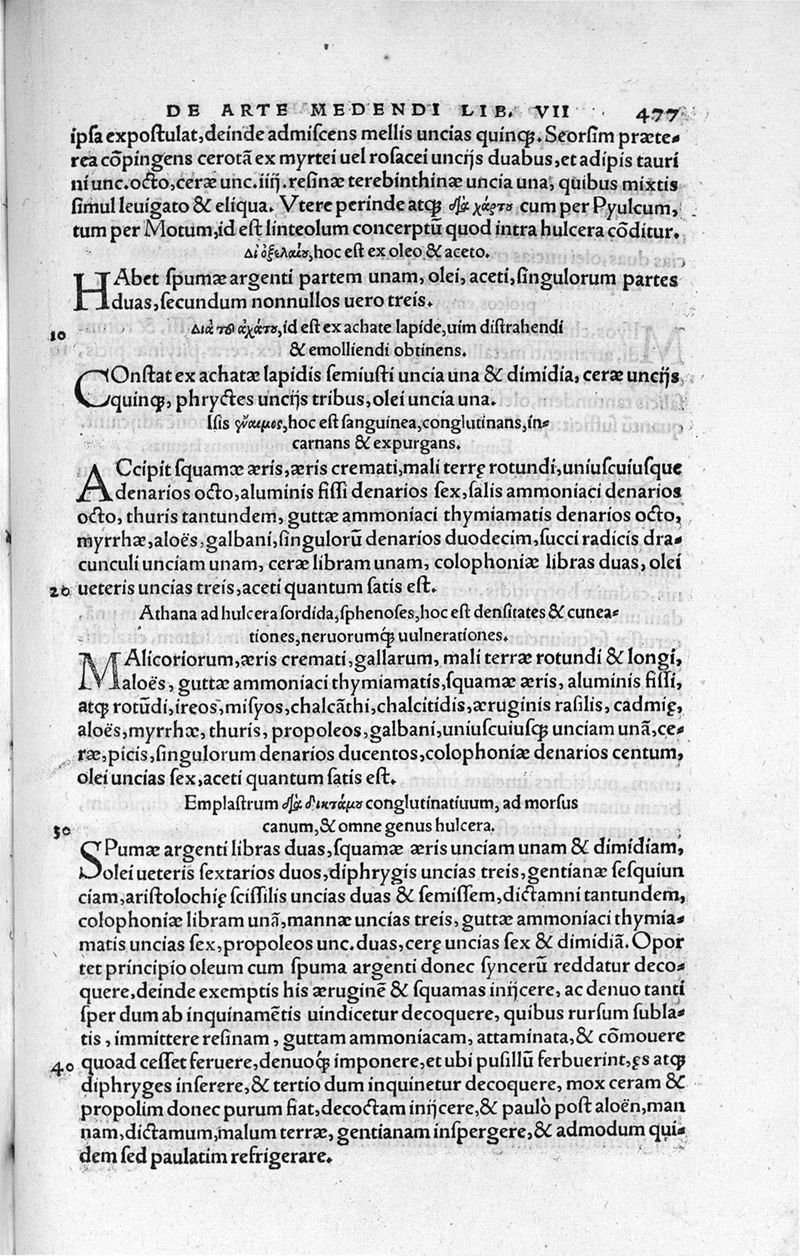 DE ARTE MEDENDI LIB. VII 477
ipsa expostulat, deinde admiscens mellis uncias quinqꝫ. Seorsim præte-
rea cõpingens cerotã ex myrtei uel rosacei uncijs duabus, et adipis tauri
ni unc. octo, ceræ unc. iiij. resinæ terebinthinæ uncia una, quibus mixtis
simul leuigato & eliqua. Vtere perinde atqꝫ διὰ χάρτου cum per Pyulcum,
tum per Motum, id est linteolum concerptũ quod intra hulcera cõditur.
Δι᾽ ὀξελαίου, hoc est ex oleo & aceto.
HAbet spumæ argenti partem unam, olei, aceti, singulorum partes
duas, secundum nonnullos uero treis.
10 Διὰ τοῦ ἀχάτου, id est ex achate lapide, uim distrahendi
& emolliendi obtinens.
COnstat ex achatæ lapidis semiusti uncia una & dimidia, ceræ uncijs
quinqꝫ, phryctes uncijs tribus, olei uncia una.
Isis ἔναιμος, hoc est sanguinea, conglutinans, in-
carnans & expurgans.
ACcipit squamæ æris, æris cremati, mali terrę rotundi, uniuscuiusque
denarios octo, aluminis fissi denarios sex, salis ammoniaci denarios
octo, thuris tantundem, guttæ ammoniaci thymiamatis denarios octo,
myrrhæ, aloës, galbani, singulorũ denarios duodecim, succi radicis dra-
cunculi unciam unam, ceræ libram unam, colophoniæ libras duas, olei
20 ueteris uncias treis, aceti quantum satis est.
Athana ad hulcera sordida, sphenoses, hoc est densitates & cunea-
tiones, neruorumqꝫ uulnerationes.
MAlicoriorum, æris cremati, gallarum, mali terræ rotundi & longi,
aloës, guttæ ammoniaci thymiamatis, squamæ æris, aluminis fissi,
atqꝫ rotũdi, ireos, misyos, chalcãthi, chalcitidis, æruginis rasilis, cadmię,
aloës, myrrhæ, thuris, propoleos, galbani, uniuscuiusqꝫ unciam unã, ce-
ræ, picis, singulorum denarios ducentos, colophoniæ denarios centum,
olei uncias sex, aceti quantum satis est.
Emplastrum διὰ δικτάμου conglutinatiuum, ad morsus
30 canum, & omne genus hulcera.
SPumæ argenti libras duas, squamæ æris unciam unam & dimidiam,
olei ueteris sextarios duos, diphrygis uncias treis, gentianæ sesquiun
ciam, aristolochię scissilis uncias duas & semissem, dictamni tantundem,
colophoniæ libram unã, mannæ uncias treis, guttæ ammoniaci thymia-
matis uncias sex, propoleos unc. duas, cerę uncias sex & dimidiã. Opor
tet principio oleum cum spuma argenti donec syncerũ reddatur deco-
quere, deinde exemptis his æruginẽ & squamas inijcere, ac denuo tanti
sper dum ab inquinamẽtis uindicetur decoquere, quibus rursum subla-
tis, immittere resinam, guttam ammoniacam, attaminata, & cõmouere
40 quoad cesset feruere, denuoqꝫ imponere, et ubi pusillũ ferbuerint, ęs atqꝫ
diphryges inserere, & tertio dum inquinetur decoquere, mox ceram &
propolim donec purum fiat, decoctam inijcere, & paulò post aloën, man
nam, dictamum, malum terræ, gentianam inspergere, & admodum qui-
dem sed paulatim refrigerare.